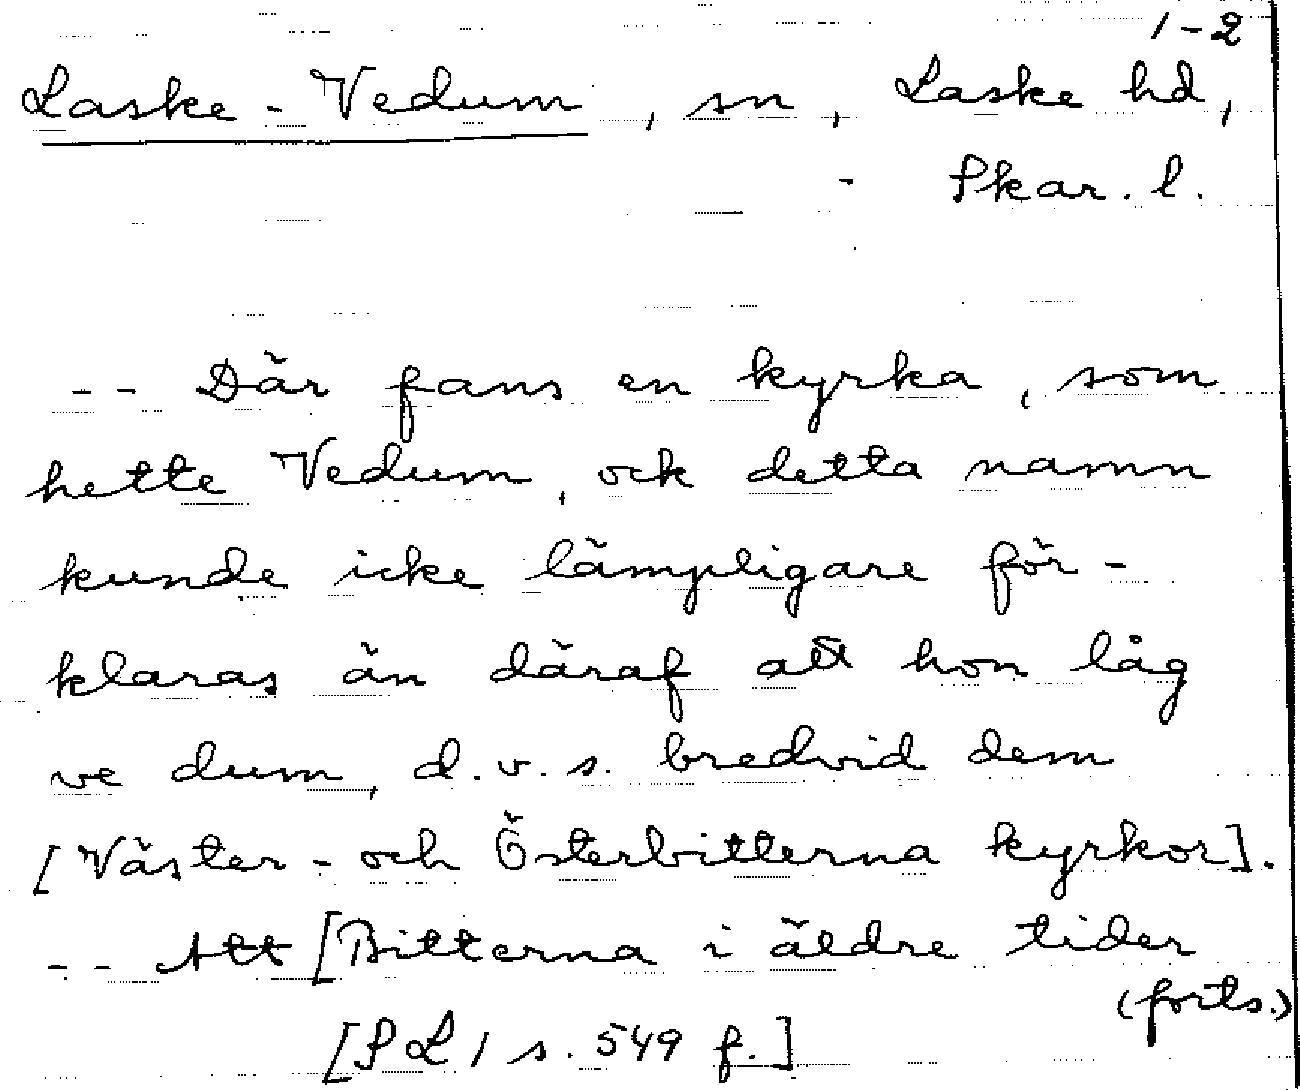 1-2
Laske-Vedum, sn, Laske hd,
- Skar. l.
-- Där fans en kyrka, som
hette Vedum, ock detta namn
kunde icke lämpligare för-
klaras än däraf att hon låg
ve dum, d.v.s. bredvid dem
[Väster- och Österbitterna kyrkor].
-- Att [Bitterna i äldre tider
(forts.)
[SL 1 s. 549 f.]